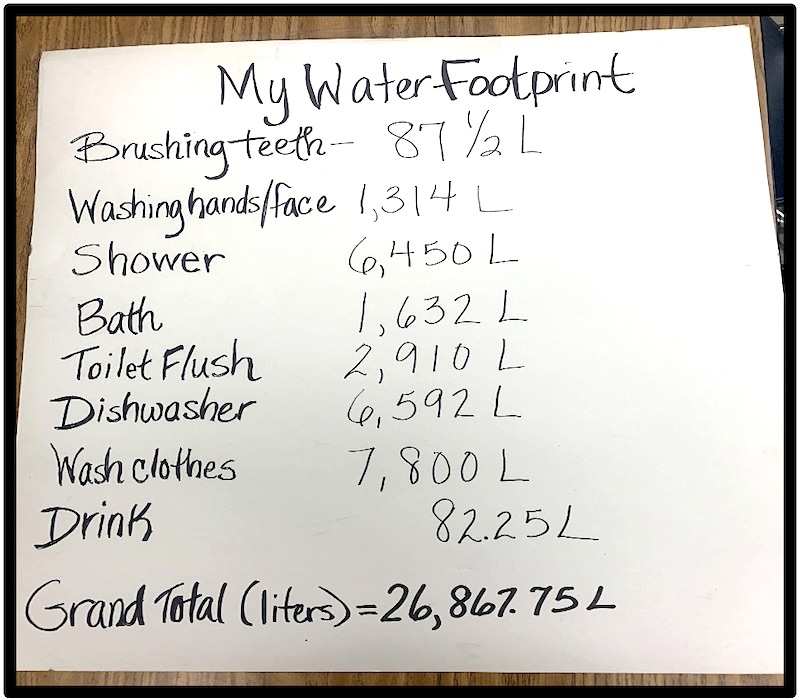 My Water Footprint
Brushing teeth - 87 1/2 L
Washing hands/face 1,314 L
Shower 6,450 L
Bath 1,632 L
Toilet Flush 2,910 L
Dishwasher 6,592 L
Wash clothes 7,800 L
Drink 82.25 L
Grand Total (liters) = 26,867.75 L